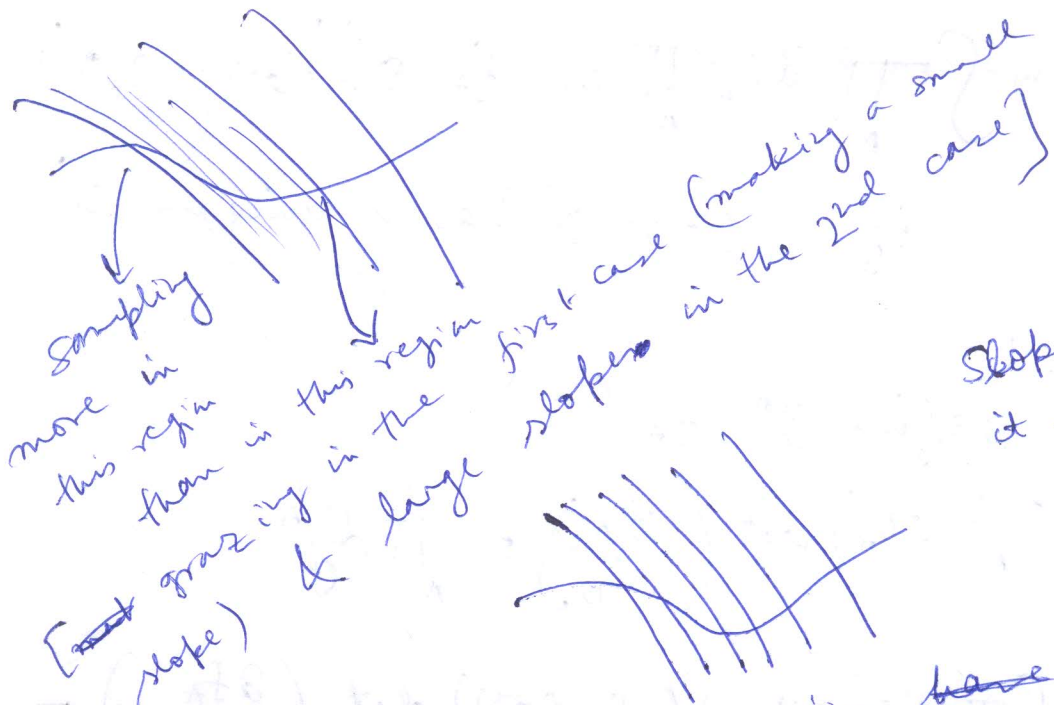 sampling
more in
this region
than in this region
[grazing in the first case (making a small
slope) & large slope in the 2nd case]
it
have